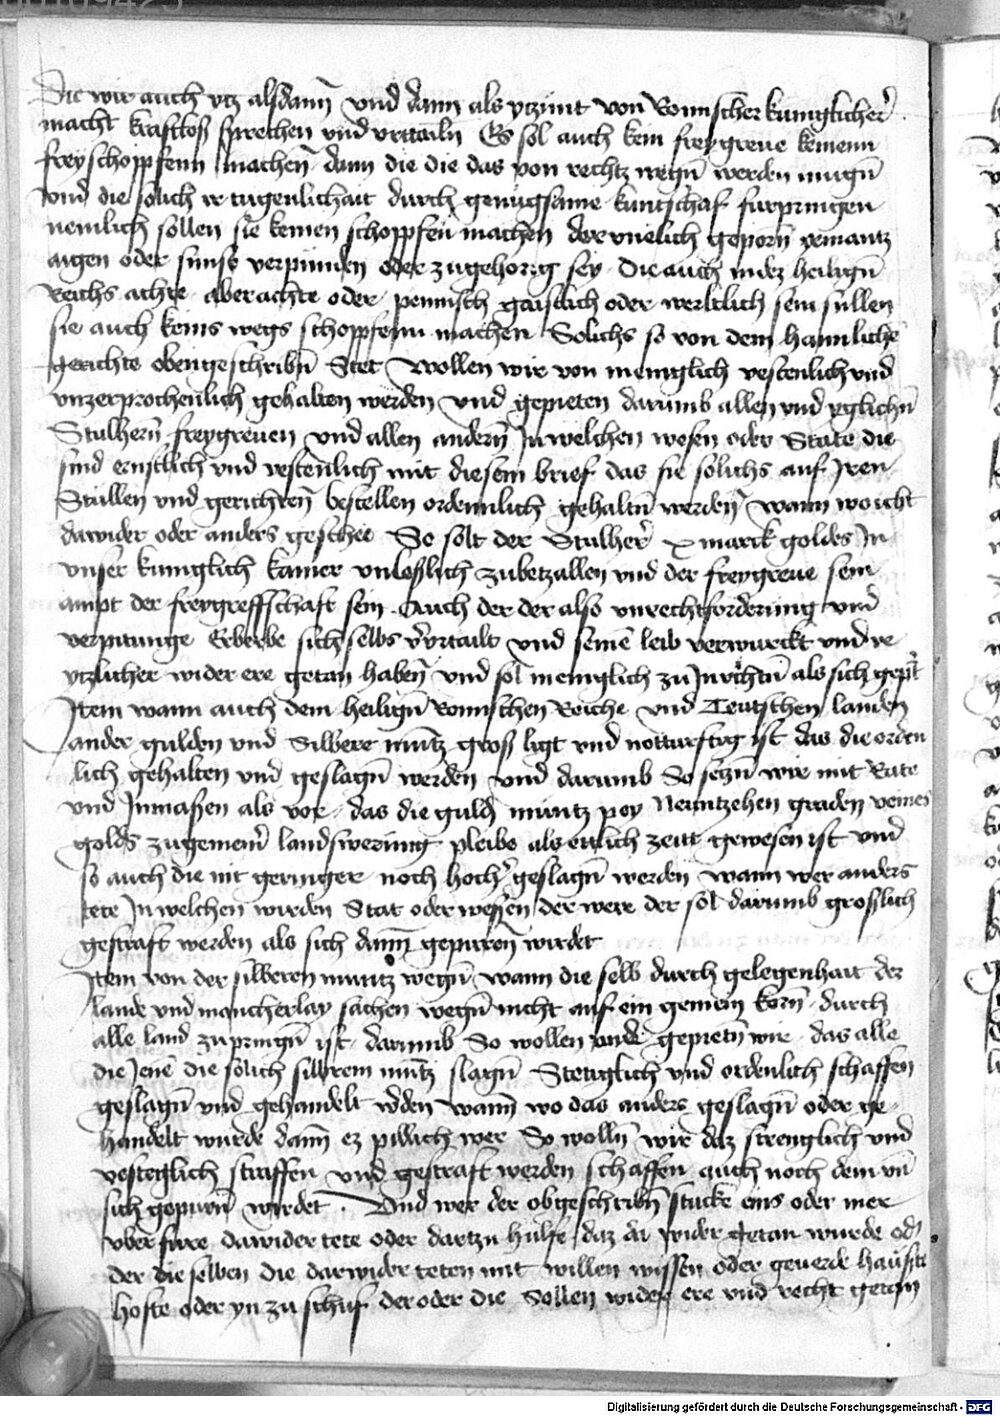 Die wir auch ytz alsdann vnd dann als ytzunt von Romischer kuniglicher
macht krafftloß sprechen vnd vrtailn Es sol auch kein freygreue keinenn
freyschopffenn machen dann die die das von rechtz wegen werden mugen
vnd die solich ir tugenlichait durch genugsame kuntschaf furpringen
nemlich sollen sie keinen schopffen machen der vnelich geporn yemantz
aigen oder sunst verpunden oder zugehorig sey Die auch in dez heiligen
Reichs achte aberachte oder pennisch gaistlich oder werltlich sein sullen
sie auch keins wegs schopffenn machen Solichs so von dem haimliche
gerichte obengeschriben Stet Wollen wir von meniglich vestenlich vnd
vnzerprochenlich gehalten werden vnd gepieten darumb allen vnd yglichen
Stulhern freygreuen vnd allen andern In welchen wesen oder State die
sind ernstlich vnd vestenlich mit diesem brief das sie solichs auf Iren
Stullen vnd gerichten bestellen ordennlich gehalten werden Wann wo icht
dawider oder anders geschee So solt der Stulherr x marck goldes In
vnser kuniglich kamer vnleßlich zubetzallen vnd der freygreue sein
ampt der freygreffschaft sein Auch der der also vnrechtforderung vnd
sich selbs vervrtailt vnd seine leib verwurckt vnd
ytzlicher wider ere getan haben vnd sol meniglich zu In richten als sich gepurt
Item wann auch dem heiligen Romischen Reiche vnd Teutschen landen
an der gulden vnd Silbere muntz groß ligt vnd notturfftig ist das die orden
lich gehalten vnd geslagen werden vnd darumb So setzen wir mit Rate
vnd Inmasen als vor das die guld muntz pey Neuntzehen graden veines
golds zugemeiner landswerung pleibe als etlich zeitt gewesen ist vnd
so auch die nit geringer noch hocher geslagen werden wann wer anders
tete In welchen wirden Stat oder wesen der were der sol darumb grosslich
gestraft werden als sich dann gepuren wirdet
Item von der silberen muntz wegen wann die selb durch gelegenhait der
lande vnd mancherlay sachen wegen nicht auf ein gemein korn durch
alle land zupringen ist darumb So wollen vnde gepieten wir das alle
die Jene die solich silbrein muntz slagen Stetiglich vnd ordenlich schaffen
geslagen vnd gehandelt werden wann wo das anders geslagen oder ge
handelt wurde dann ez pillich wer So wollen wir daz strenglich vnd
vesteglich straffen vnd gestraft werden schaffen auch noch dem vn
sich gepuren wirdet. Vnd wer der obgeschriben stucke eins oder mer
vberfure dawider tete oder dartzu hulfe daz da wider getan wurde oder
der die selben die darwider teten mit willen wissen oder geuerde hauste
hofte oder yn zu schuf der oder die Sollen wider ere vnd recht getan
Digitalisierung gefördert durch die Deutsche Forschungsgemeinschaft - DFG